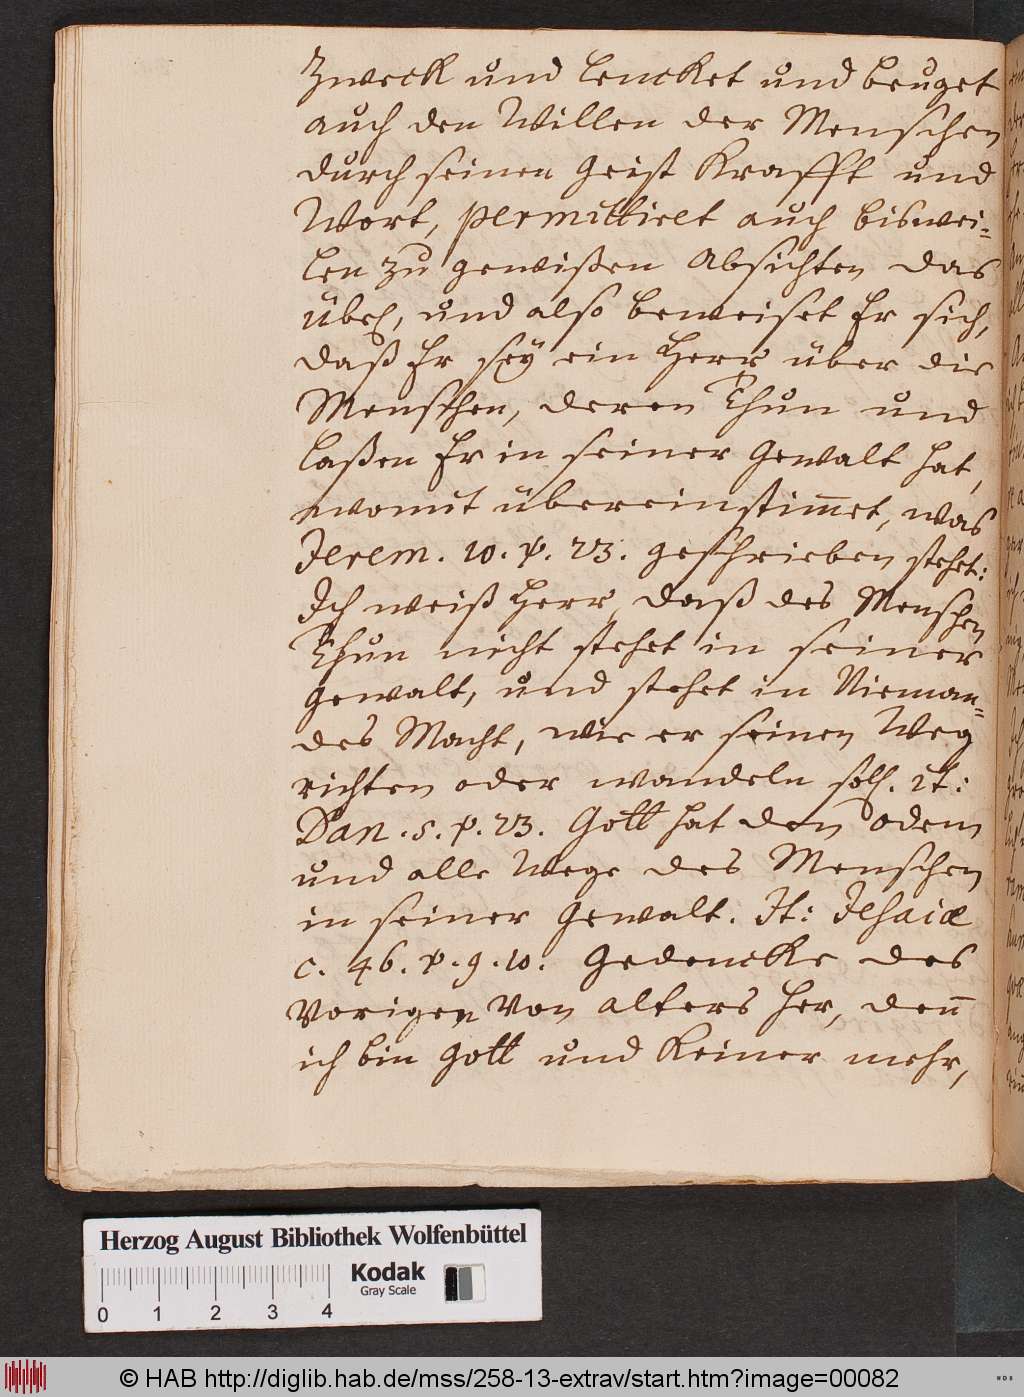 Zweck und lencket und beuget
auch den Willen der Menschen
durch seinen Geist Krafft und
Wort, permittiret auch biswei=
len zu gewißen Absichten das
übel, und also beweiset Er sich,
daß Er seÿ ein Herr über die
Menschen, deren Thun und
laßen Er in seiner Gewalt hat,
womit übereinstim̅et, was
Jerem. 10. v. 23. geschrieben stehet:
Ich weiß Herr, daß des Menschen
Thun nicht stehet in seiner
Gewalt, und stehet in Nieman=
des Macht, wie er seinen Weg
richten oder wandeln soll. it:
Dan. 5. v. 23. Gott hat den Odem
und alle Wege des Menschen
in seiner Gewalt. It: Jesaiæ
c. 46. v. 9. 10. Gedencke des
Vorigen von alters her, den̅
ich bin Gott und Keiner mehr,
Herzog August Bibliothek Wolfenbüttel
Kodak
Gray Scale
0 1 2 3 4
© HAB http://diglib.hab.de/mss/258-13-extrav/start.htm?image=00082